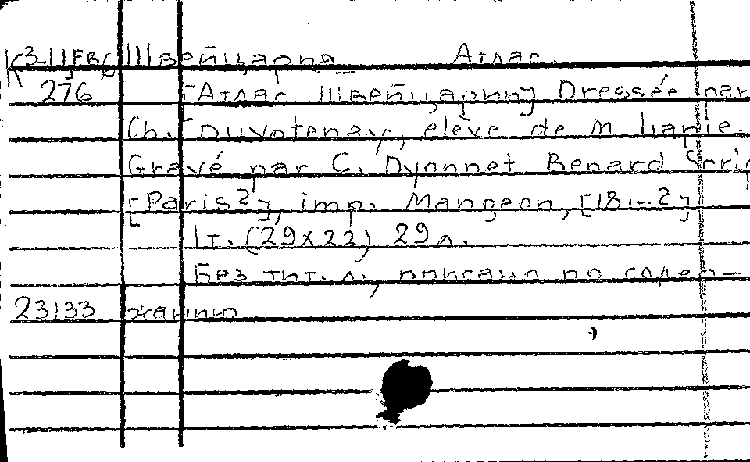 К3-11Fвс Швейцария Атлас.
276 [Атлас Швейцарии] Dressée par
Ch. Duvotenay, élève de M. Lapie.
Gravé par C. Dyonnet Benard Scrip
[Paris?], imp. Mangeon, [18--?]
1т. (29x22) 29л.
Без тит. л., описано по содер-
23133 жанию